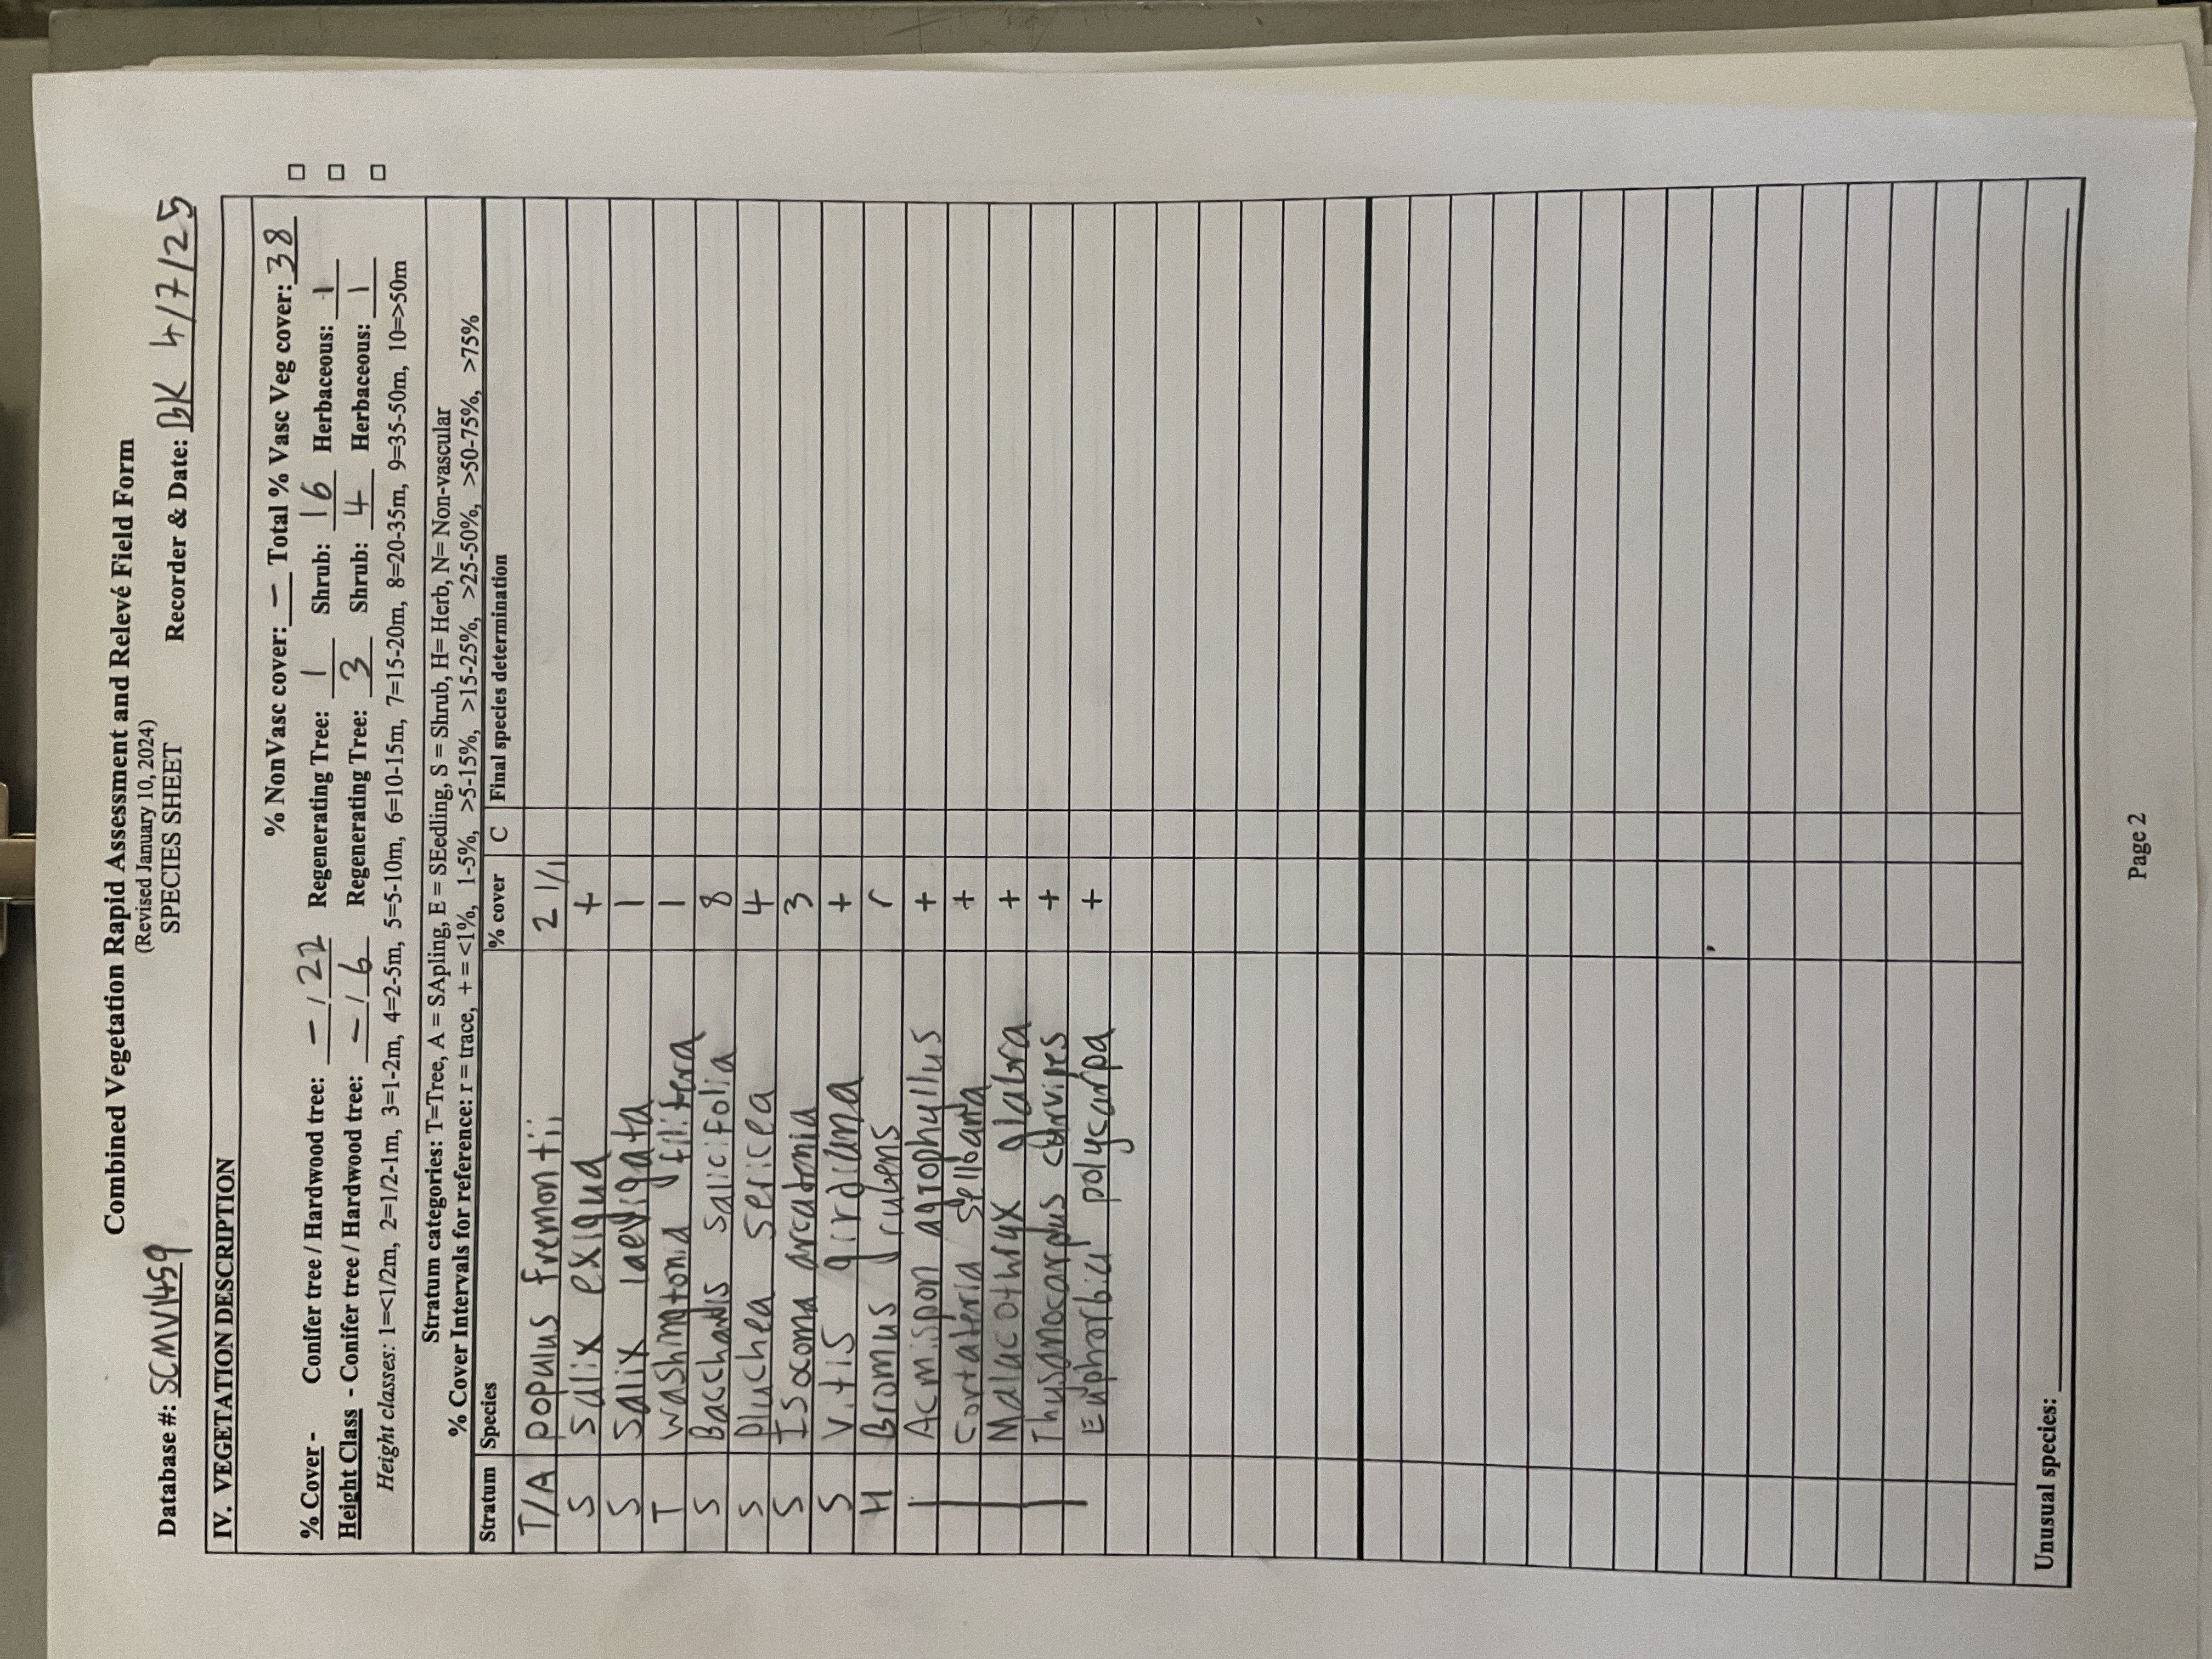 Combined Vegetation Rapid Assessment and Relevé Field Form
(Revised January 10, 2024)
SPECIES SHEET
Database #: SCMV1459 Recorder & Date: BK 4/7/25
IV. VEGETATION DESCRIPTION
% NonVasc cover: – Total % Vasc Veg cover: 38
% Cover - Conifer tree / Hardwood tree: – / 22 Regenerating Tree: 1 Shrub: 16 Herbaceous: 1
Height Class - Conifer tree / Hardwood tree: – / 6 Regenerating Tree: 3 Shrub: 4 Herbaceous: 1
Height classes: 1=<1/2m, 2=1/2-1m, 3=1-2m, 4=2-5m, 5=5-10m, 6=10-15m, 7=15-20m, 8=20-35m, 9=35-50m, 10=>50m
Stratum categories: T=Tree, A = SApling, E = SEedling, S = Shrub, H= Herb, N= Non-vascular
% Cover Intervals for reference: r = trace, + = <1%, 1-5%, >5-15%, >15-25%, >25-50%, >50-75%, >75%
Stratum Species % cover C Final species determination
T/A populus fremontii 21/1
S Salix exigua +
S Salix laevigata 1
T washingtonia filifera 1
S Bacchadis salicifolia 8
S pluchea sericea 4
S Isocoma arcadonia 3
S Vitis girdiana +
H Bromus rubens r
Acmispon agrophyllus +
Cortateria selloana +
Malacothryx glabra +
Thysanocarpus curvipes +
Euphorbia polycarpa +
Unusual species:
Page 2